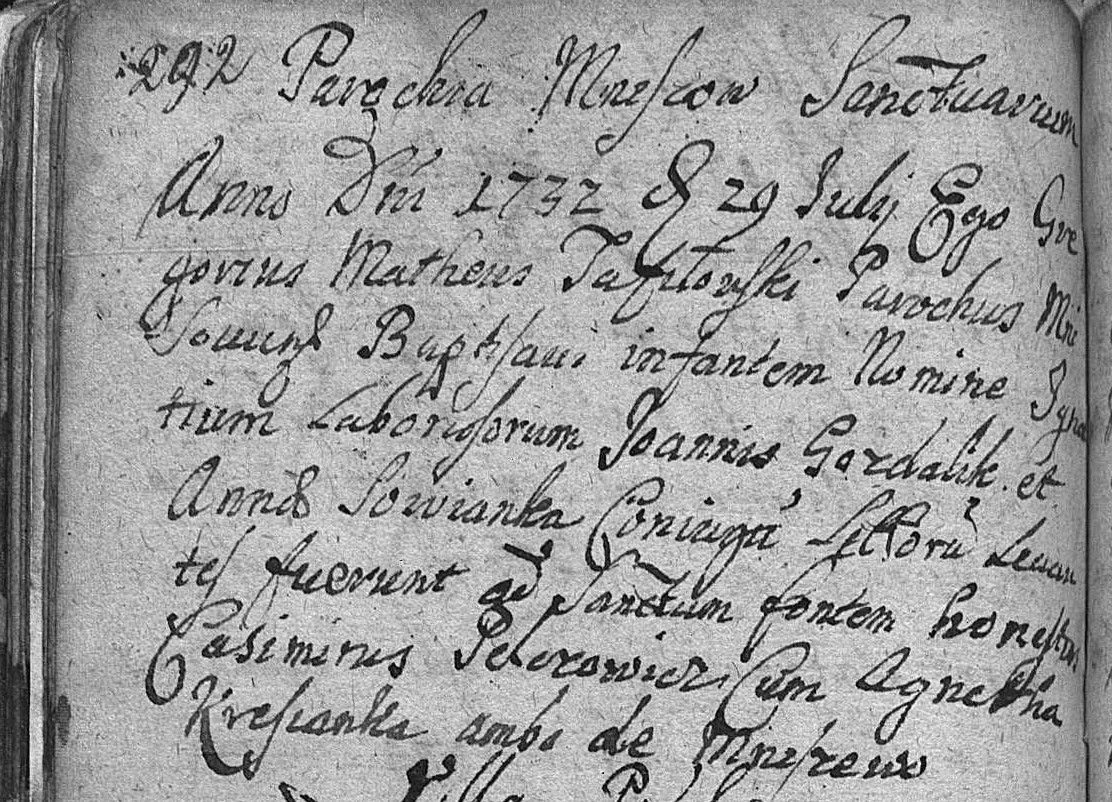 292 Parochia Mnescow Sanctuarum
Anno Dni 1732 d 29 Julij Ego Gre
gorius Matheus Tafiłowski Parochus Mni
Baptisavi infantem Nomine Igna
tium Laboriosorum Joannis Gordalik et
Annæ Sowianka Coniugũ Levan
tes fuerunt ad Sanctum fontem honestus
Casimirus Peterowicz Cum Agnetha
Kresianka ambo de Mnisrewo